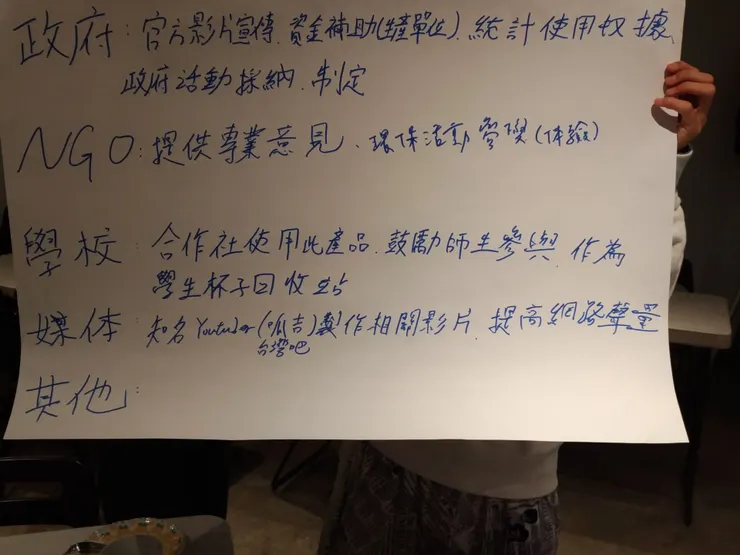 政府：官方影片宣傳、資金補助(生產單位)、統計使用奴據、
政府活動採納、制定
NGO：提供專業意見、環保活動營隊(体驗)
學校：合作社使用此產品、鼓勵師生參與、作為
學生杯子回收站
媒体：知名Youtuber(呱吉)製作相關影片、提高網路聲量
台灣吧
其他：